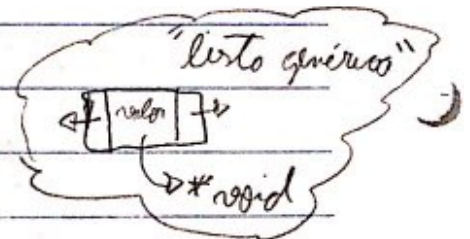 "lista genérica"
valor
* void